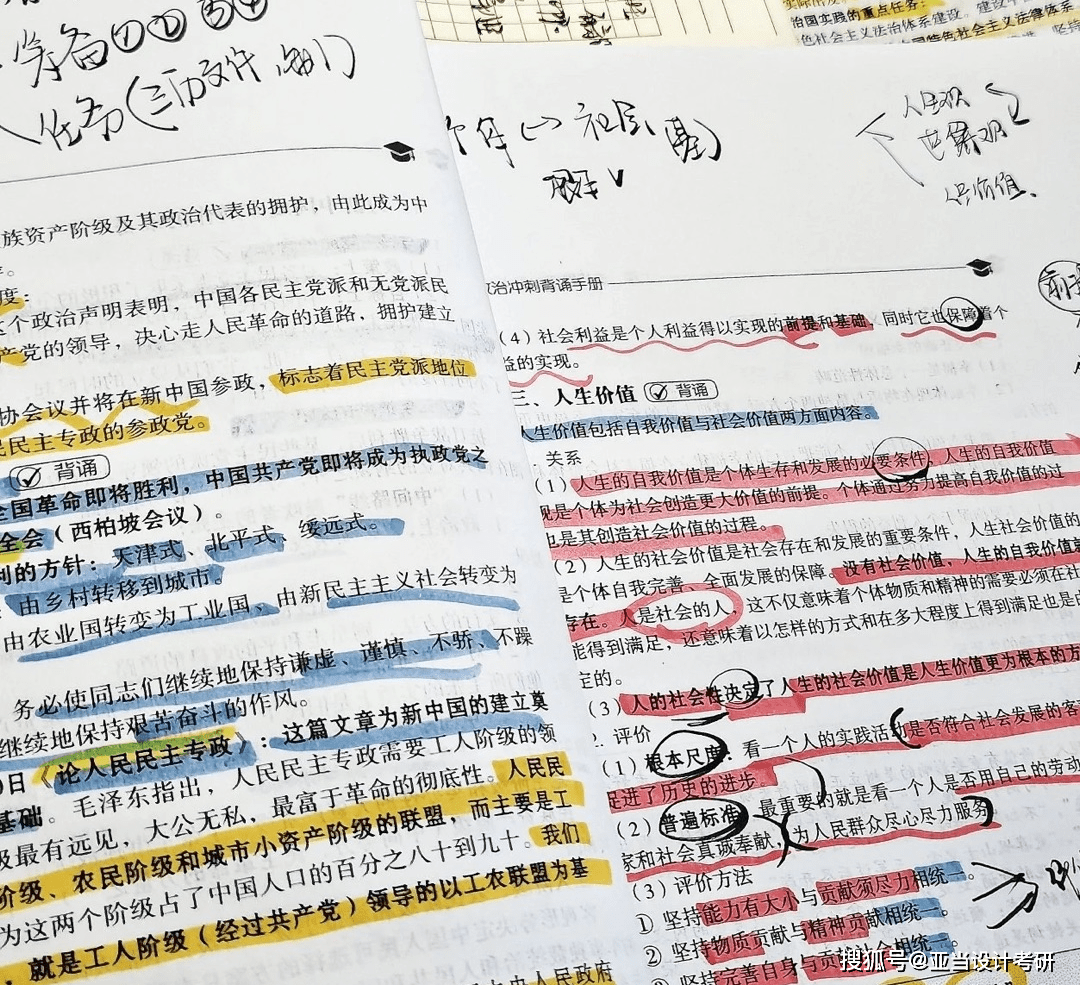 准备①②③④
任务(三历文件,
族资产阶级及其政治代表的拥护，由此成为中
度：
个政治声明表明，中国各民主党派和无党派民
，决心走人民革命的道路，拥护建立
产党的领导，
协会议并将在新中国参政，标志着民主党派地位
民民主专政的参政党。
背诵
全国革命即将胜利，中国共产党即将成为执政党之
全会（西柏坡会议）。
利的方针：天津式、北平式、绥远式。
由乡村转移到城市。
由农业国转变为工业国、由新民主主义社会转变为
务必使同志们继续地保持谦虚、谨慎、不骄、不躁
继续地保持艰苦奋斗的作风。
日《论人民民主专政》：这篇文章为新中国的建立奠
基础。毛泽东指出，人民民主专政需要工人阶级的领
级最有远见，大公无私，最富于革命的彻底性。人民民
阶级、农民阶级和城市小资产阶级的联盟，而主要是工
为这两个阶级占了中国人口的百分之八十到九十。我们
就是工人阶级（经过共产党）领导的以工农联盟为基
中央人民政府
治国实践的重点任务：
色社会主义法治体系建设。
特色社会主义法律体系
社会
人生观
世界观
价值
政治冲刺背诵手册
（4）社会利益是个人利益得以实现的前提和基础，同时它也保障着个
益的实现。
三、人生价值 背诵
人生价值包括自我价值与社会价值两方面内容。
关系
（1）人生的自我价值是个体生存和发展的必要条件，人生的自我价值
现是个体为社会创造更大价值的前提。个体通过努力提高自我价值的过
也是其创造社会价值的过程。
（2）人生的社会价值是社会存在和发展的重要条件，人生社会价值的
是个体自我完善、全面发展的保障。没有社会价值，人生的自我价值就
存在。人是社会的人，这不仅意味着个体物质和精神的需要必须在社
能得到满足，还意味着以怎样的方式和在多大程度上得到满足也是由
定的。
（3）人的社会性决定了人生的社会价值是人生价值更为根本的方
2. 评价
（1）根本尺度：看一个人的实践活动是否符合社会发展的客
促进了历史的进步
（2）普遍标准：最重要的就是看一个人是否用自己的劳动
家和社会真诚奉献，为人民群众尽心尽力服务
（3）评价方法
① 坚持能力有大小与贡献须尽力相统一。
② 坚持物质贡献与精神贡献相统一。
坚持完善自身与贡献社会相统一。
搜狐号@亚当设计考研